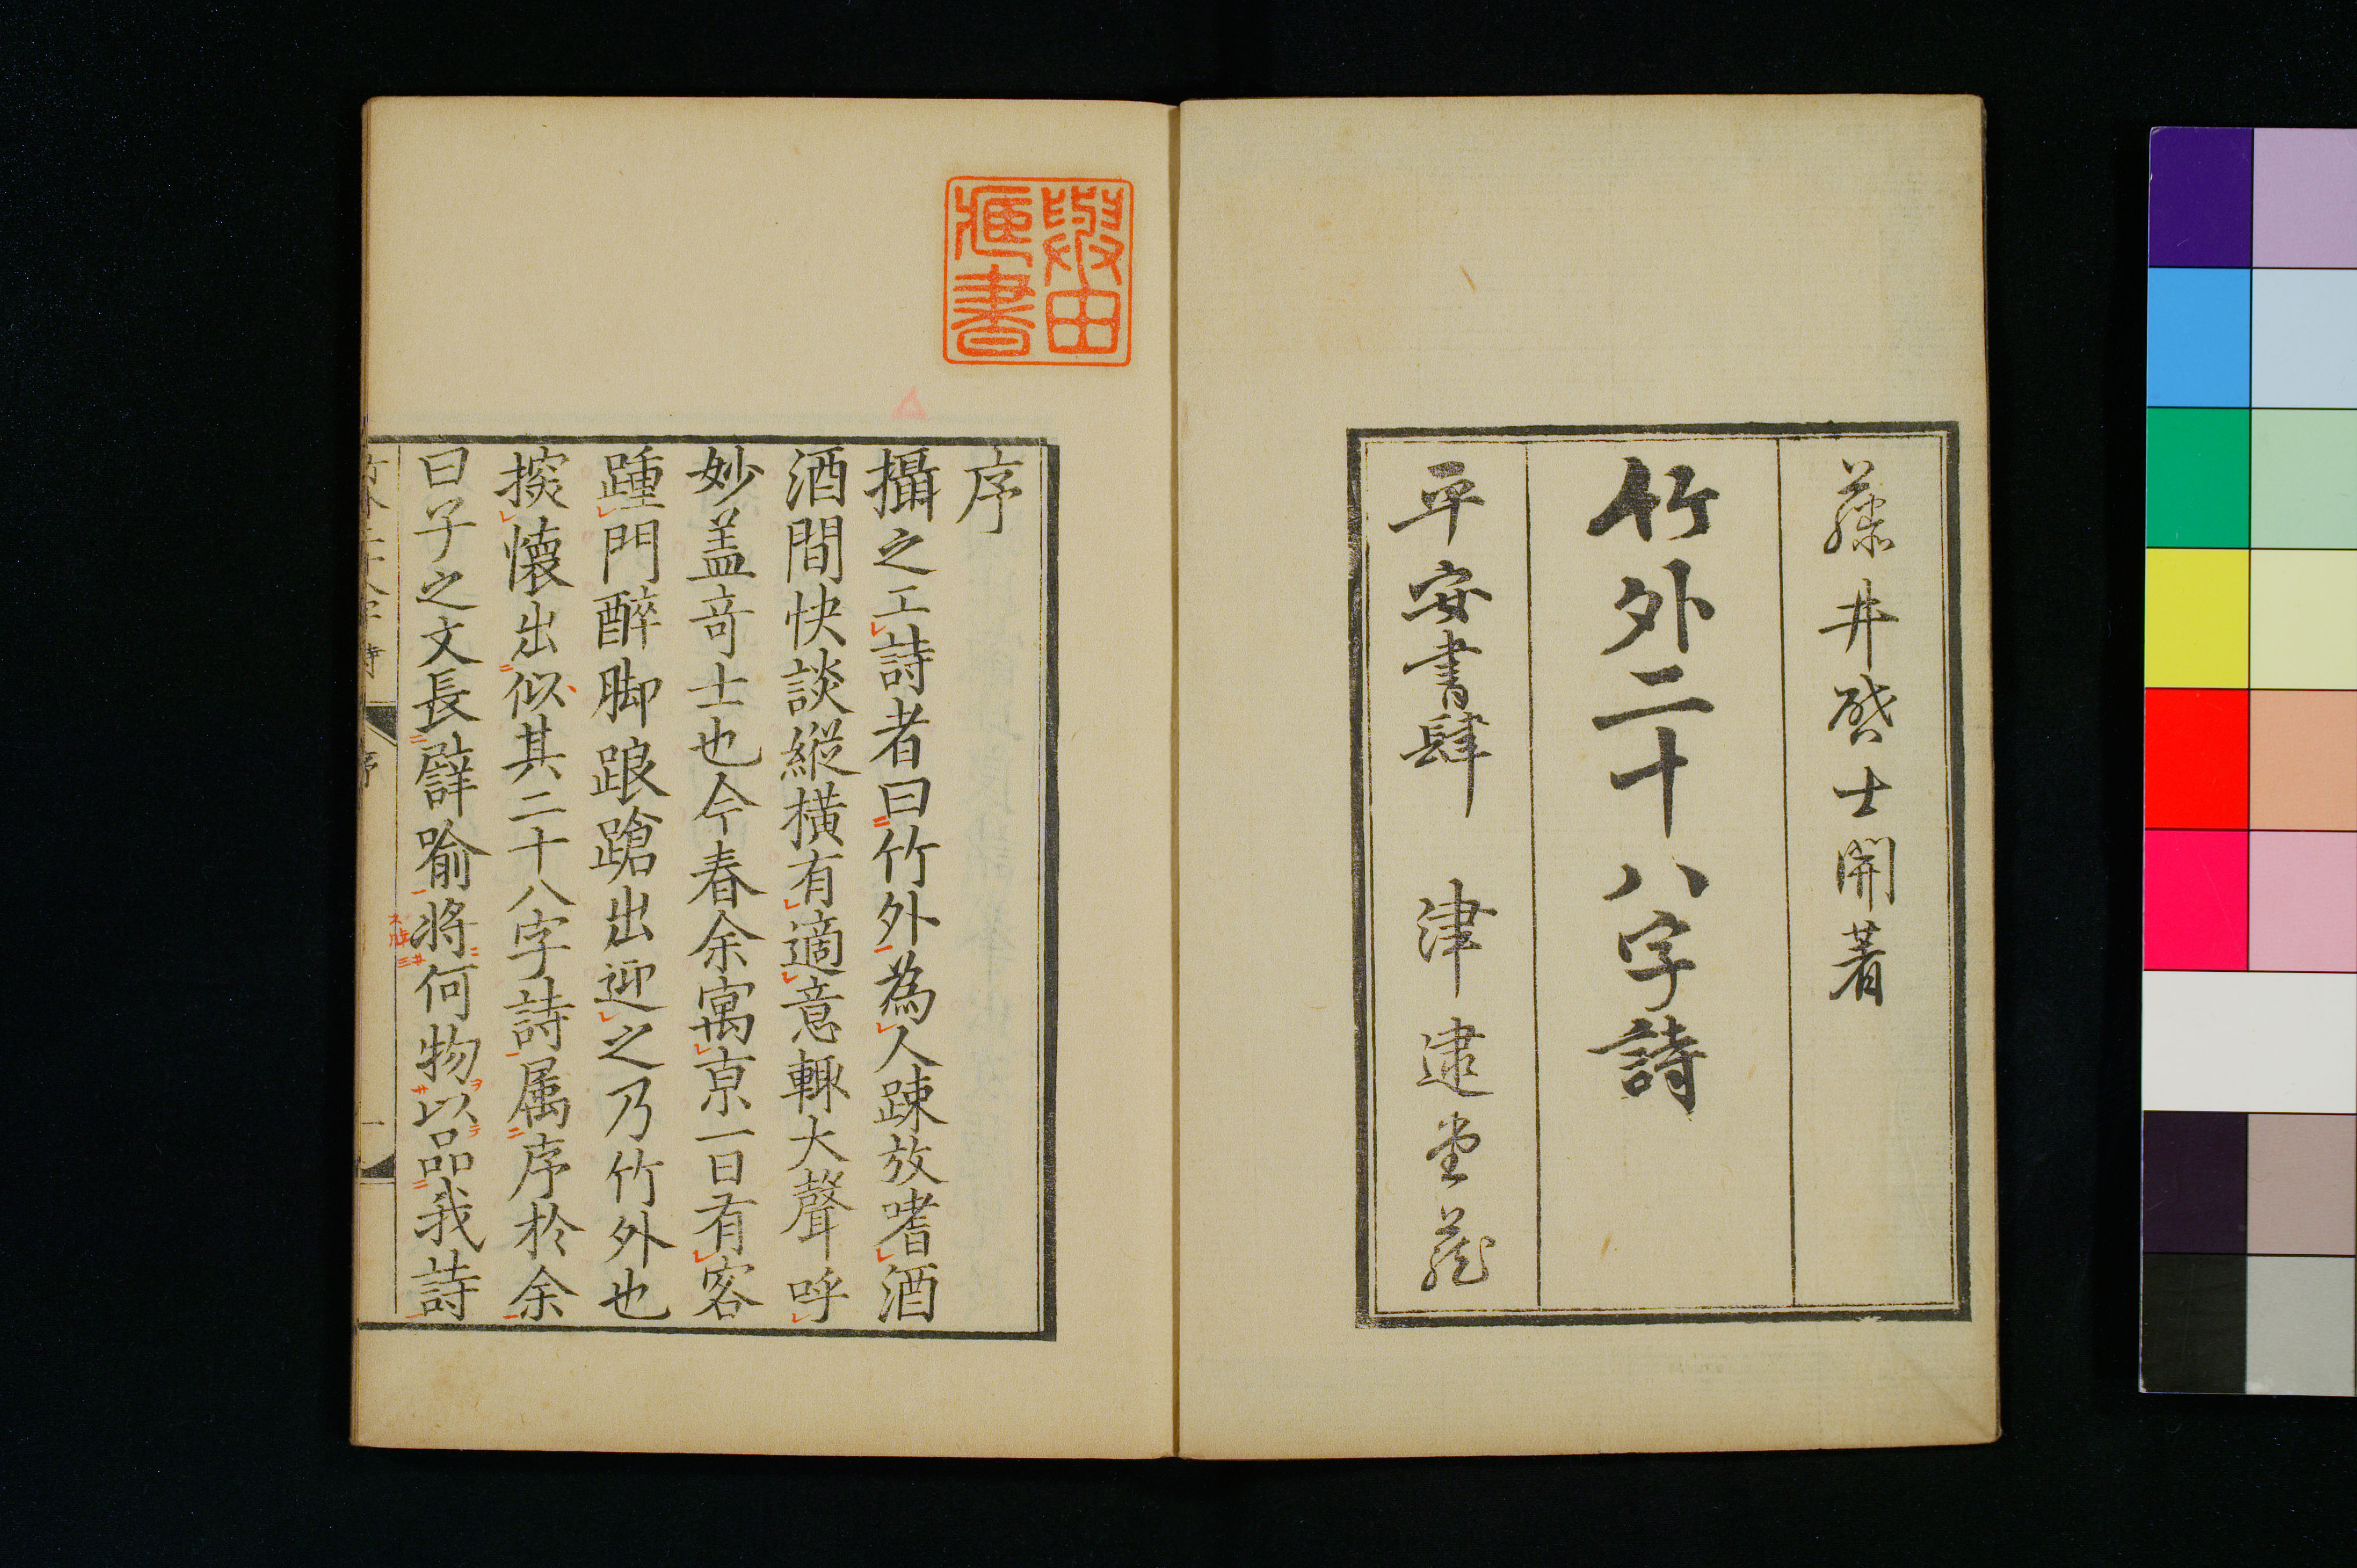 藤井啓士開著
竹外二十八字詩
平安書肆 津逮堂蔵
序
攝之工詩者曰竹外為人踈放嗜酒
酒間快談縦横有適意輙大聲呼
妙盖竒士也今春余寓京一日有客
踵門醉脚踉蹌出迎之乃竹外也
探懐出似其二十八字詩属序於余
曰子之文長譬喻將何物以品我詩